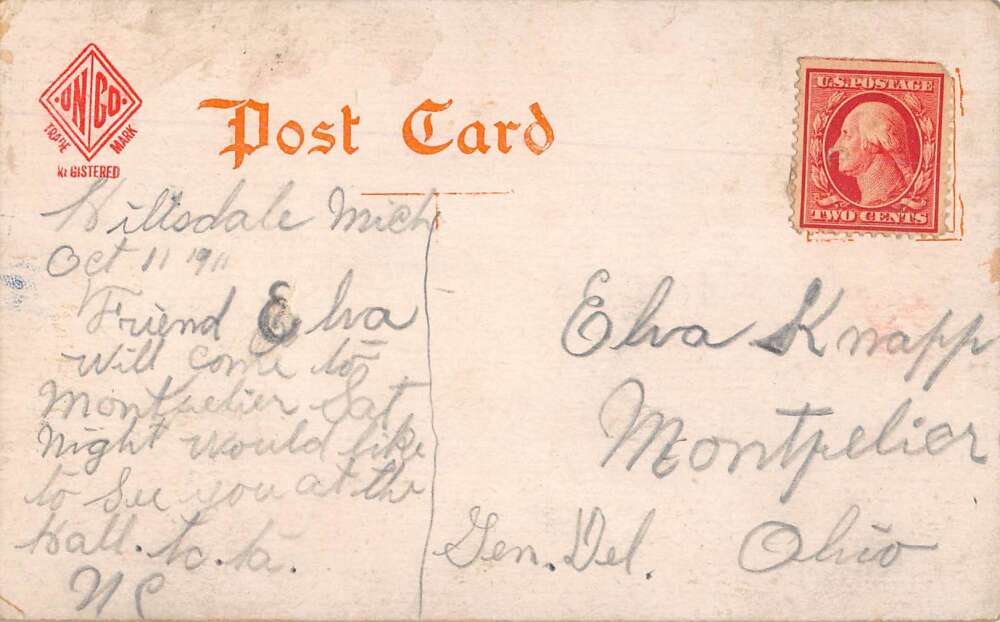 UNCO.
TRADE MARK
REGISTERED
Post Card
U.S. POSTAGE
TWO CENTS
Hillsdale Mich
Oct 11 1911
Friend Elva
Will come to
Montpelier Sat
Night would like
to see you at the
Hall.
Elva Knapp
Montpelier
Gen. Del. Ohio